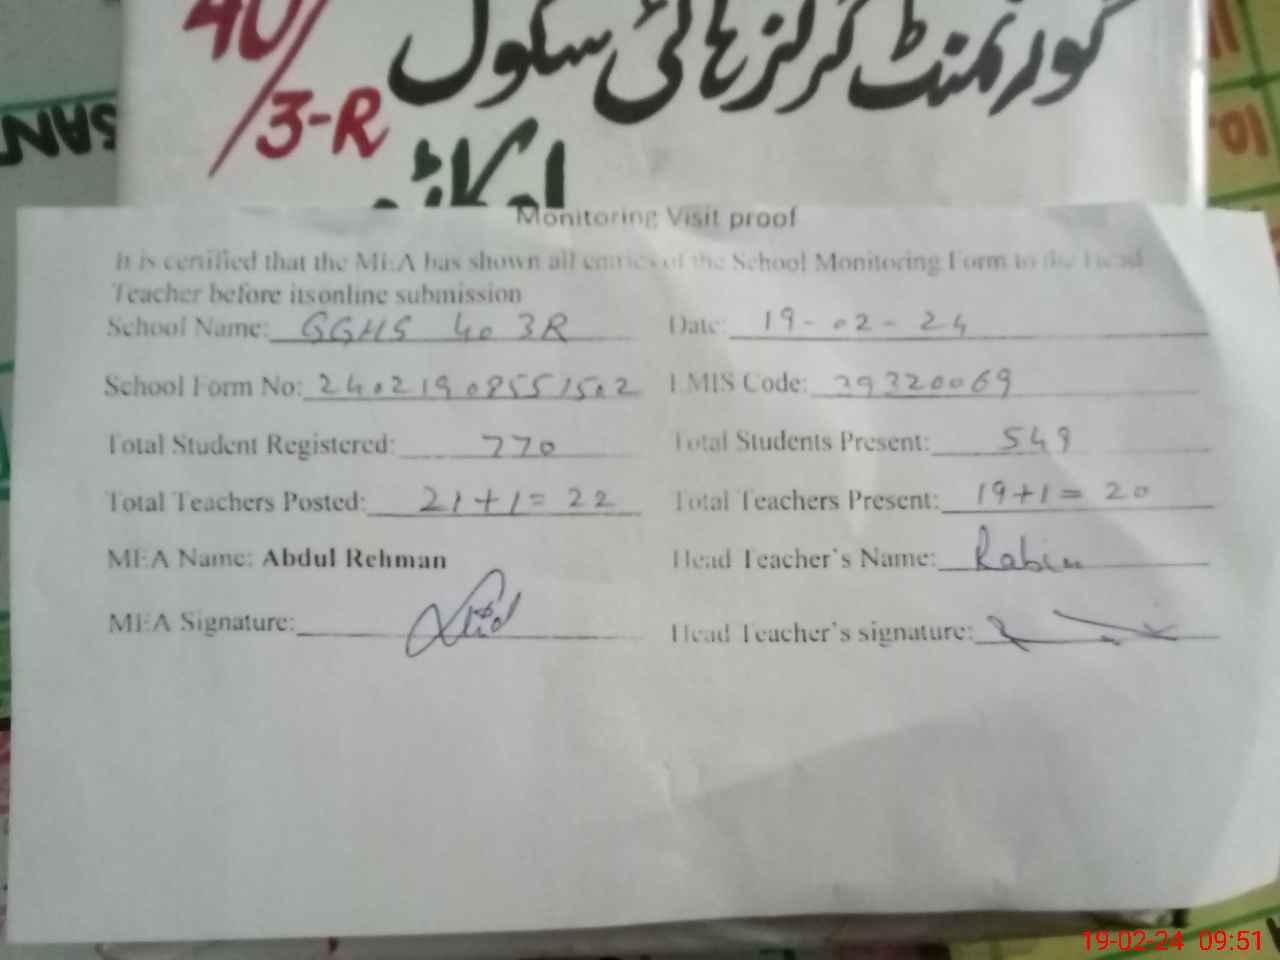 40/3-R گورنمنٹ گرلز ہائی سکول
اوکاڑہ
SAN
10.
Monitoring Visit proof
It is certified that the MEA has shown all entries of the School Monitoring Form to the Head
Teacher before itsonline submission
School Name: GGHS 40 3R Date: 19-02-24
School Form No: 24021908551502 EMIS Code: 39320069
Total Student Registered: 770 Total Students Present: 549
Total Teachers Posted: 21+1= 22 Total Teachers Present: 19+1= 20
MEA Name: Abdul Rehman Head Teacher's Name:
MEA Signature: Head Teacher's signature:
19-02-24 09:51